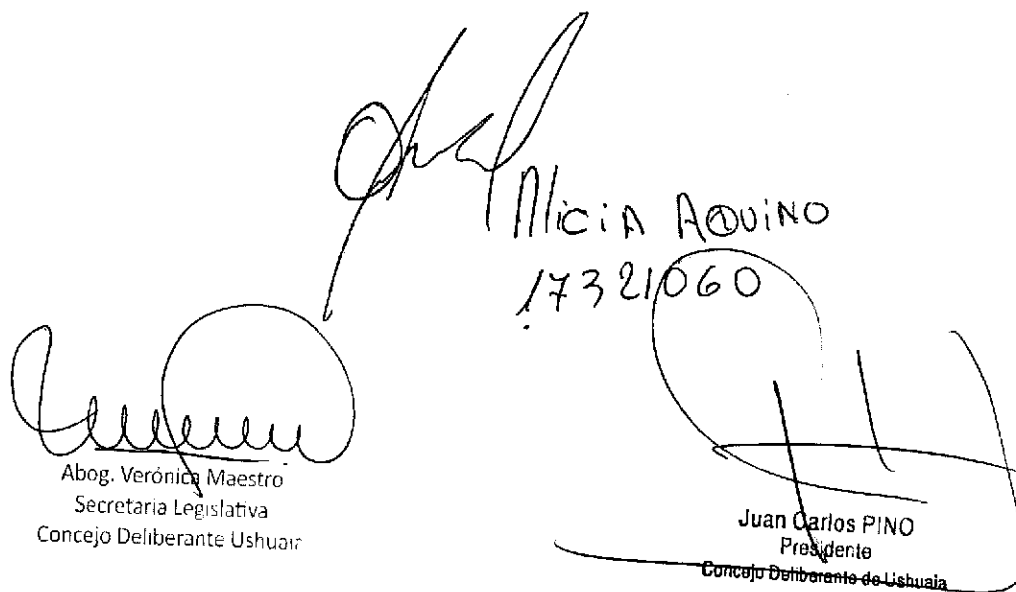 Alicia AQUINO
17321060
Abog. Verónica Maestro
Secretaria Legislativa
Concejo Deliberante Ushuaia
Juan Carlos PINO
Presidente
Concejo Deliberante de Ushuaia